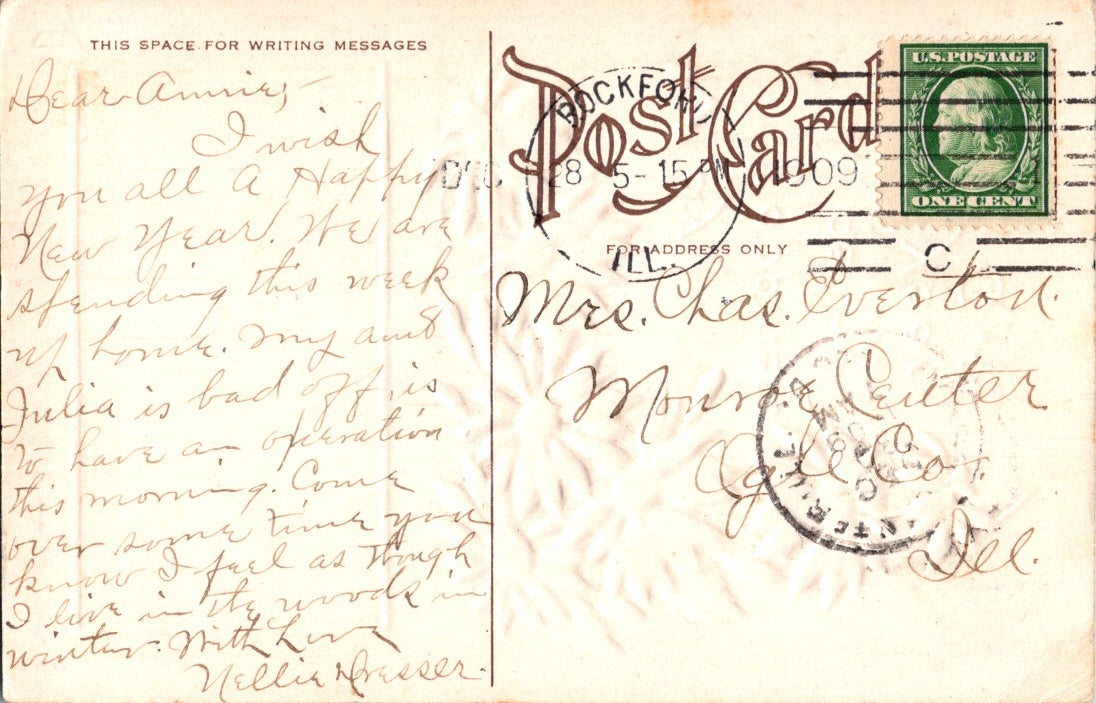 THIS SPACE FOR WRITING MESSAGES
Dear Annie,-
I wish
you all a Happy
New Year. We are
spending this week
up home. My aunt
Julia is bad off, is
to have an operation
this morning. Come
over some time you
know I feel as though
I live in the woods in
winter. With Love
Nellie Dresser.
Post Card
ROCKFORD
DEC 28 5-15 PM 1909
ILL.
U.S. POSTAGE
ONE CENT
FOR ADDRESS ONLY
Mrs. Chas. Iverton.
Monroe Center
Ogle Co
Ill.